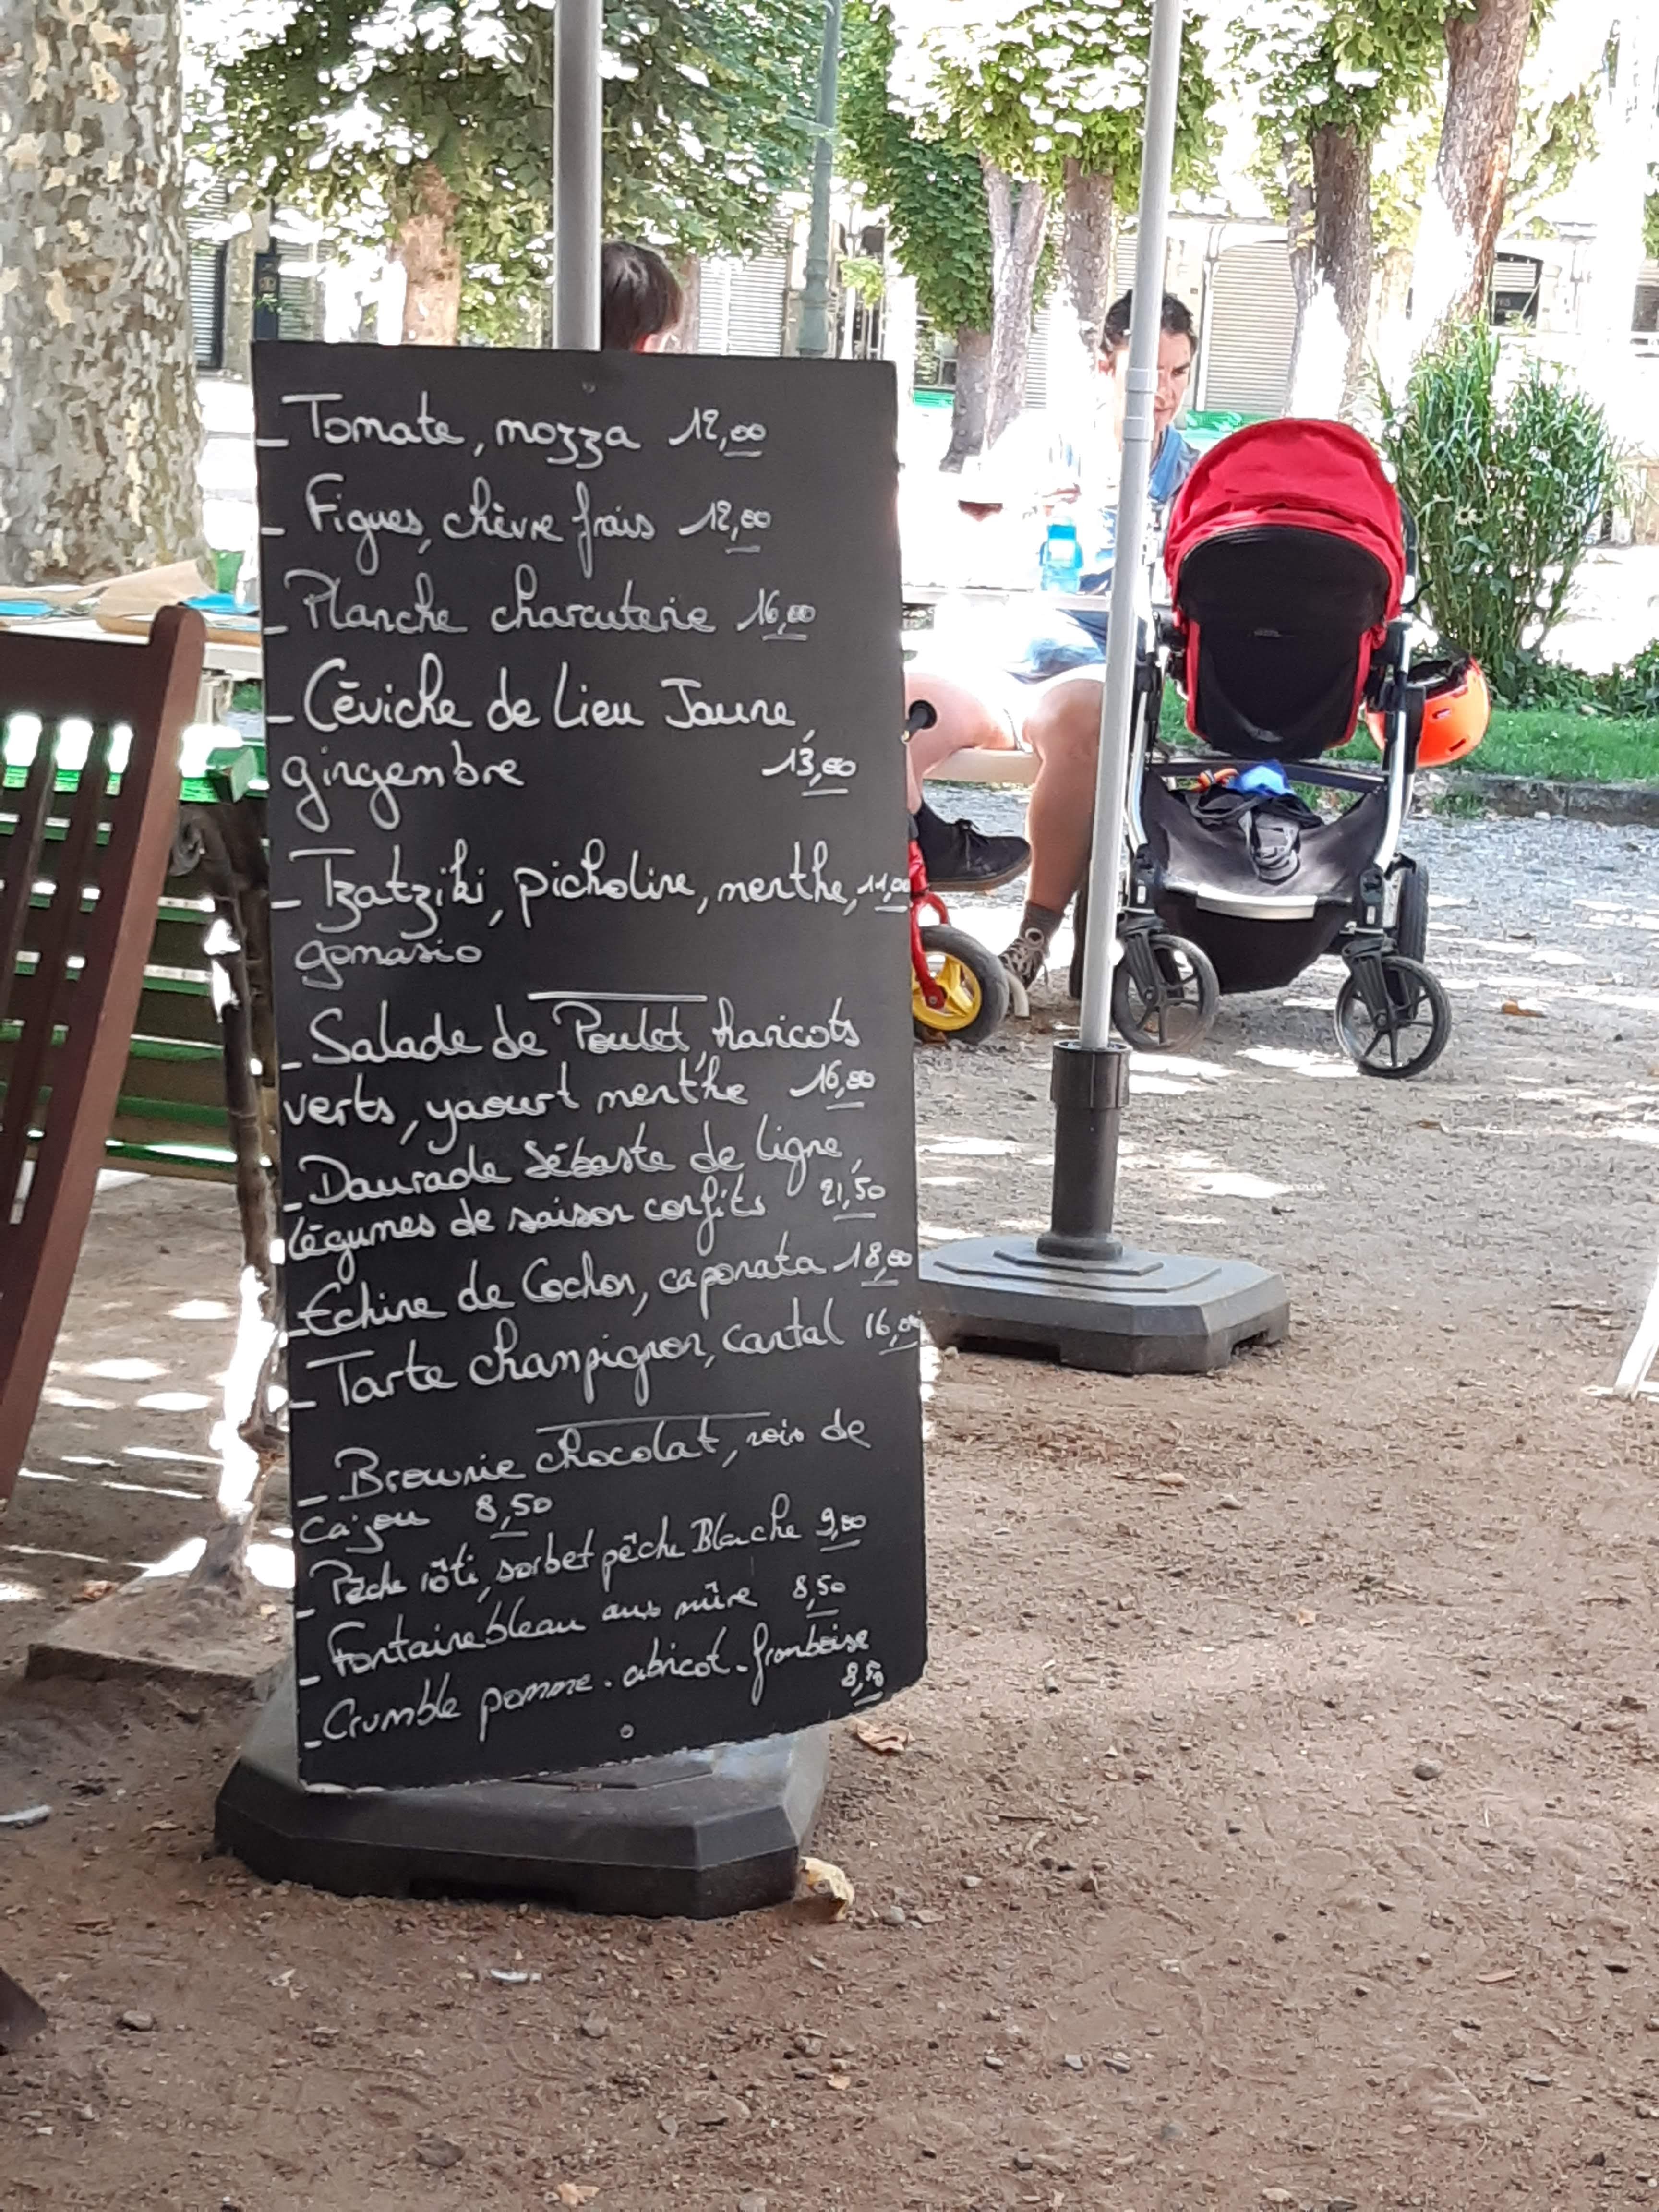 - Tomate, mozza 12,00
- Figues, chèvre frais 12,00
- Planche charcuterie 16,00
- Céviche de Lieu Jaune,
gingembre 13,00
- Tzatziki, picholine, menthe, 11,00
gomasio
- Salade de Poulet, haricots
verts, yaourt menthe 16,00
- Daurade Sébaste de ligne,
légumes de saison confits 21,50
- Echine de Cochon, caponata 18,00
- Tarte champignon, cantal 16,00
- Brownie chocolat, noix de
cajou 8,50
- Pêche rôti, sorbet pêche Blanche 9,00
- Fontainebleau aux mûre 8,50
- Crumble pomme - abricot - framboise
8,50